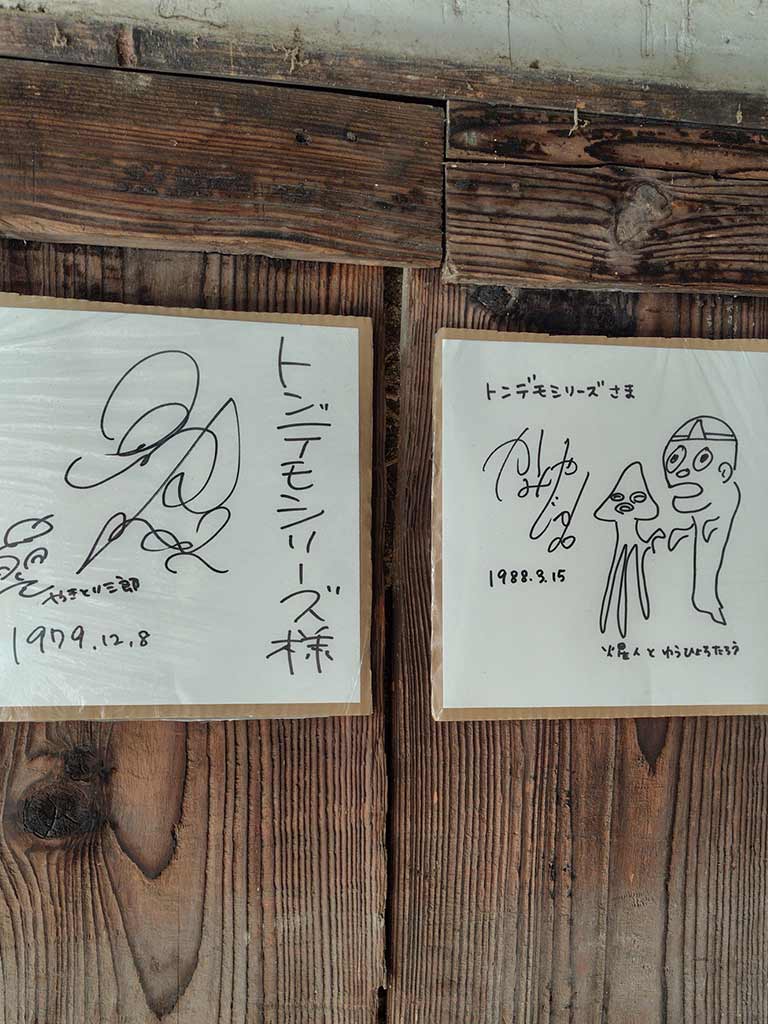 トンデモシリーズ様
やきとり三郎
1979.12.8
トンデモシリーズさま
かみや
じゅる
1988.3.15
火星人とゆうひょろたろう